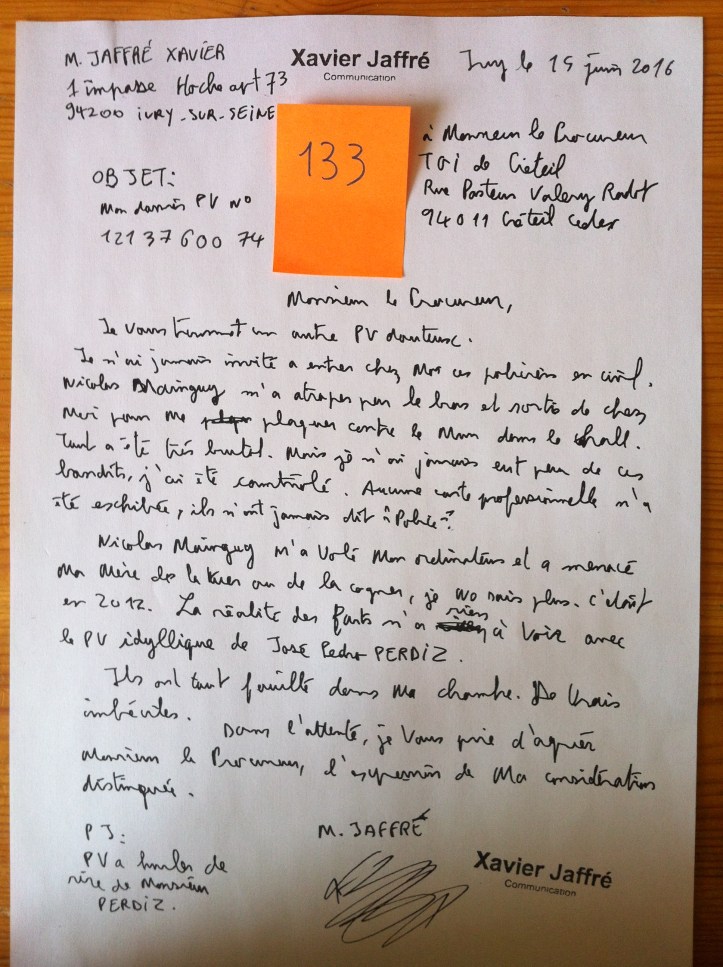 M. JAFFRÉ XAVIER
1 impasse Hoche art 73
94200 IVRY-SUR-SEINE
Xavier Jaffré
Communication
Ivry le 15 juin 2016
133
à Monsieur le Procureur
TGI de Créteil
Rue Pasteur Valery Radot
94011 Créteil Cedex
OBJET:
Mon PV N°
121 37600 74
Monsieur le Procureur,
Je vous transmet un autre PV douteux.
Je n'ai jamais invité a entrer chez Moi ces policiers en civil.
Nicolas Mainguy m'a atraper par le bras et sortie de chez
Moi pour me plaquer contre le Mur dans le hall.
Tout a été très brutal. Mais je n'ai jamais eut peur de ces
bandits, j'ai été comtrôlé. Aucune carte professionnelle n'a
été exhibée, ils n'ont jamais dit "Police".
Nicolas Mainguy M'a volé Mon ordinateur et a menacé
Ma Mère de le tuer ou de la cogner, je NO sais plus. C'était
en 2012. La réalité des faits n'a rien à Voir avec
le PV idyllique de José Pedro PERDIZ.
Ils ont tout fouillé dans Ma chambre. De vrais
imbéciles.
Dans l'attente, je Vous prie d'agréer
Monsieur le Procureur, l'expression de Ma considération
distinguée.
PJ:
PV a hurler de
rire de Monsieur
PERDIZ.
M. JAFFRÉ
Xavier Jaffré
Communication